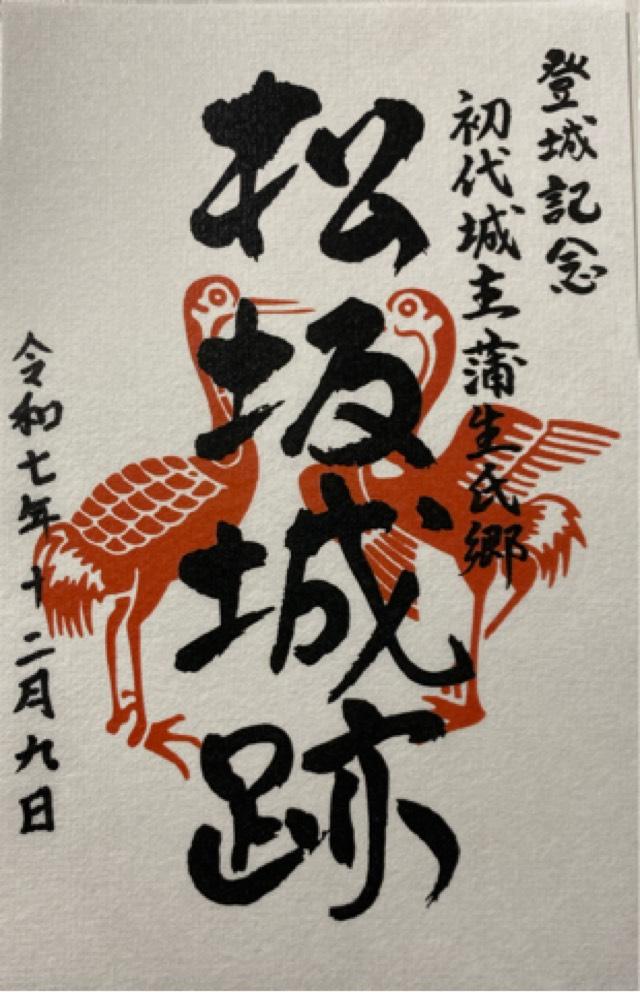 登城記念
初代城主蒲生氏郷
松坂城跡
令和七年十二月九日